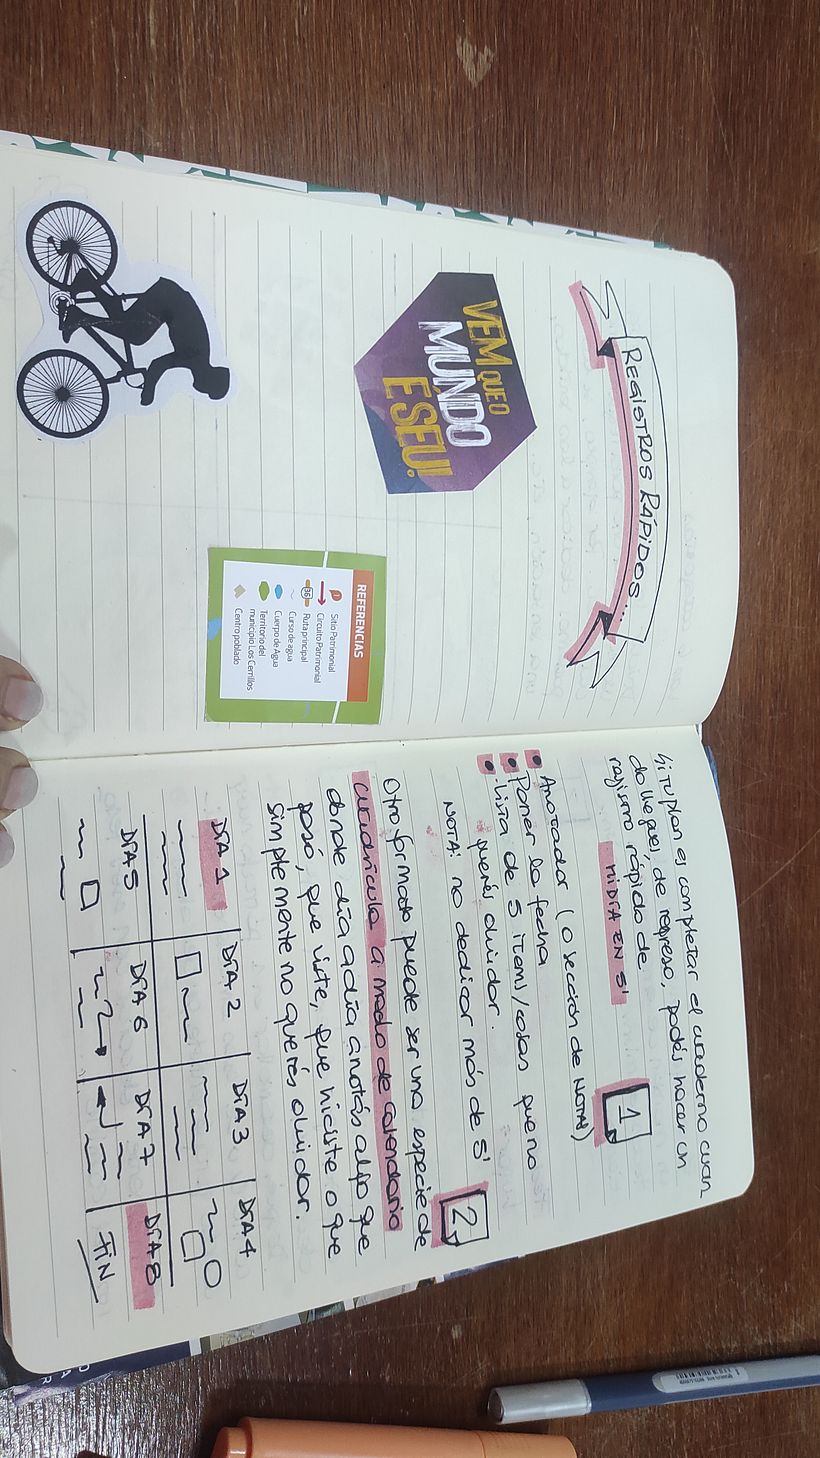 REGISTROS RÁPIDOS...
VEM QUE O
MUNDO
É SEU!
REFERENCIAS
Sitio Patrimonial
Circuito Patrimonial
36 Ruta principal
Curso de agua
Cuerpo de Agua
Territorio del
municipio Los Cerrillos
Centro poblado
Si tu plan es completar el cuaderno cuan
do llegues, de regreso, podés hacer un
registro rápido de
MI DÍA EN 5'
1
Anotador (o sección de NOTAS)
Poner la fecha
Lista de 5 items/cosas que no
querés olvidar.
NOTA: no dedicar más de 5'
2
Otro formato puede ser una especie de
cuadrícula a modo de calendario
donde día a día anotás algo que
pasó, que viste, que hiciste o que
simplemente no querés olvidar.
DÍA 1 DÍA 2 DÍA 3 DÍA 4
DÍA 5 DÍA 6 DÍA 7 DÍA 8
FIN